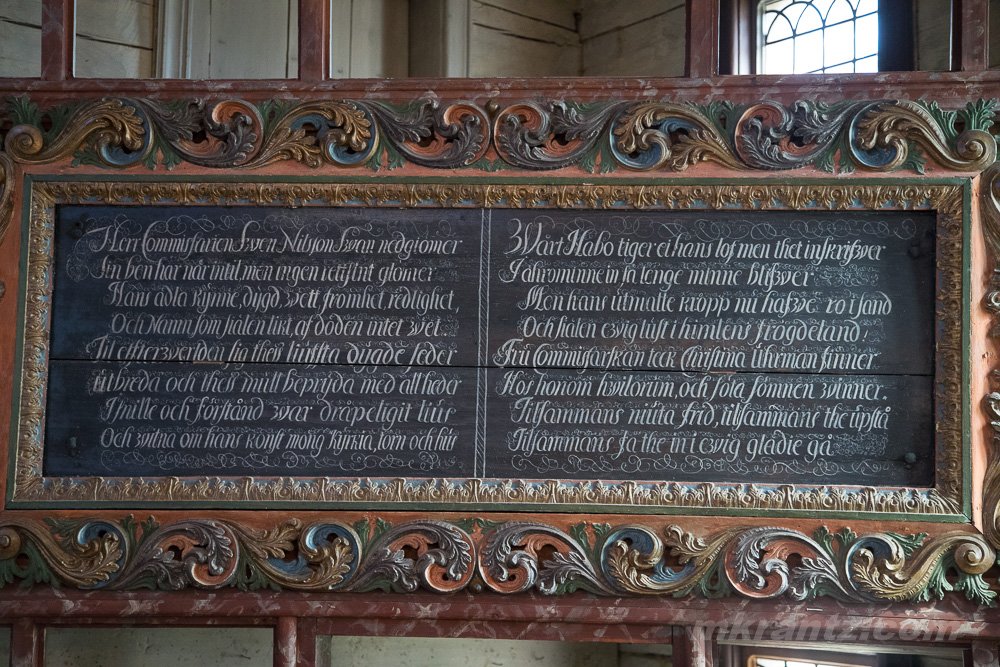 Herr Commissarien Swen Nilsson Swan nedgiömer
Sin ben här når intil men ingen retsint glömer
Hans ädla kynne, dygd, wett fromhet redlighet,
Och Namn som hälen lint af döden intet wet.
til effterwerlden sig thess liufsta dygde seder
utbreda och thess mull bepryda med all heder
Snille och förstånd war dråpeligit lius
Och witna om hans konst mong kyrkia, torn och hus
Wårt Habo tiger ei hans lof men thet inskrifwer
I åhrominne sin så länge minne blifwer
Men hans utmatte kropp nu hafwe ro i sand
Och siälen ewig lust i himlens frögdeland
Fru Commissarskan täck Christina Uhrman finner
Hos honom hwilorum, och sola sömnen winner.
Tilsammans niuta frid, tilsammans the upstå
Tilsammans så the in i ewig glädie gå
mkrantz.com